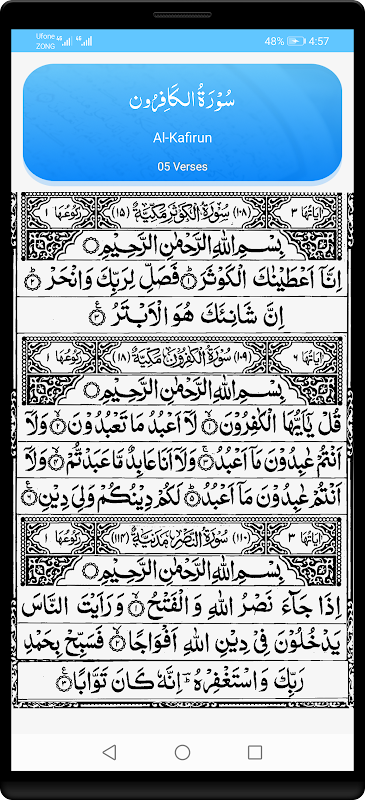 Ufone
ZONG
4G 4G
48% 4:57
سُوْرَةُ الكَافِرُون
Al-Kafirun
05 Verses
اٰیَاتُهَا ٣ (١٠٨) سُوْرَةُ الْكَوْثَرِ مَكِّيَّةٌ (١٥) رُكُوْعُهَا ١
بِسْمِ اللّٰهِ الرَّحْمٰنِ الرَّحِيْمِ
اِنَّاۤ اَعْطَيْنٰكَ الْكَوْثَرَ ١ فَصَلِّ لِرَبِّكَ وَانْحَرْ ٢
اِنَّ شَانِئَكَ هُوَ الْاَبْتَرُ ٣
اٰیَاتُهَا ٦ (١٠٩) سُوْرَةُ الْكٰفِرُوْنَ مَكِّيَّةٌ (١٨) رُكُوْعُهَا ١
بِسْمِ اللّٰهِ الرَّحْمٰنِ الرَّحِيْمِ
قُلْ يٰۤاَيُّهَا الْكٰفِرُوْنَ ١ لَاۤ اَعْبُدُ مَا تَعْبُدُوْنَ ٢ وَلَاۤ
اَنْتُمْ عٰبِدُوْنَ مَاۤ اَعْبُدُ ٣ وَلَاۤ اَنَا عَابِدٌ مَّا عَبَدْتُّمْ ٤ وَلَاۤ
اَنْتُمْ عٰبِدُوْنَ مَاۤ اَعْبُدُ ٥ لَكُمْ دِيْنُكُمْ وَلِيَ دِيْنِ ٦
اٰیَاتُهَا ٣ (١١٠) سُوْرَةُ النَّصْرِ مَدَنِيَّةٌ (١١٤) رُكُوْعُهَا ١
بِسْمِ اللّٰهِ الرَّحْمٰنِ الرَّحِيْمِ
اِذَا جَآءَ نَصْرُ اللّٰهِ وَالْفَتْحُ ١ وَرَاَيْتَ النَّاسَ
يَدْخُلُوْنَ فِيْ دِيْنِ اللّٰهِ اَفْوَاجًا ٢ فَسَبِّحْ بِحَمْدِ
رَبِّكَ وَاسْتَغْفِرْهُ ؕ اِنَّهٗ كَانَ تَوَّابًا ٣